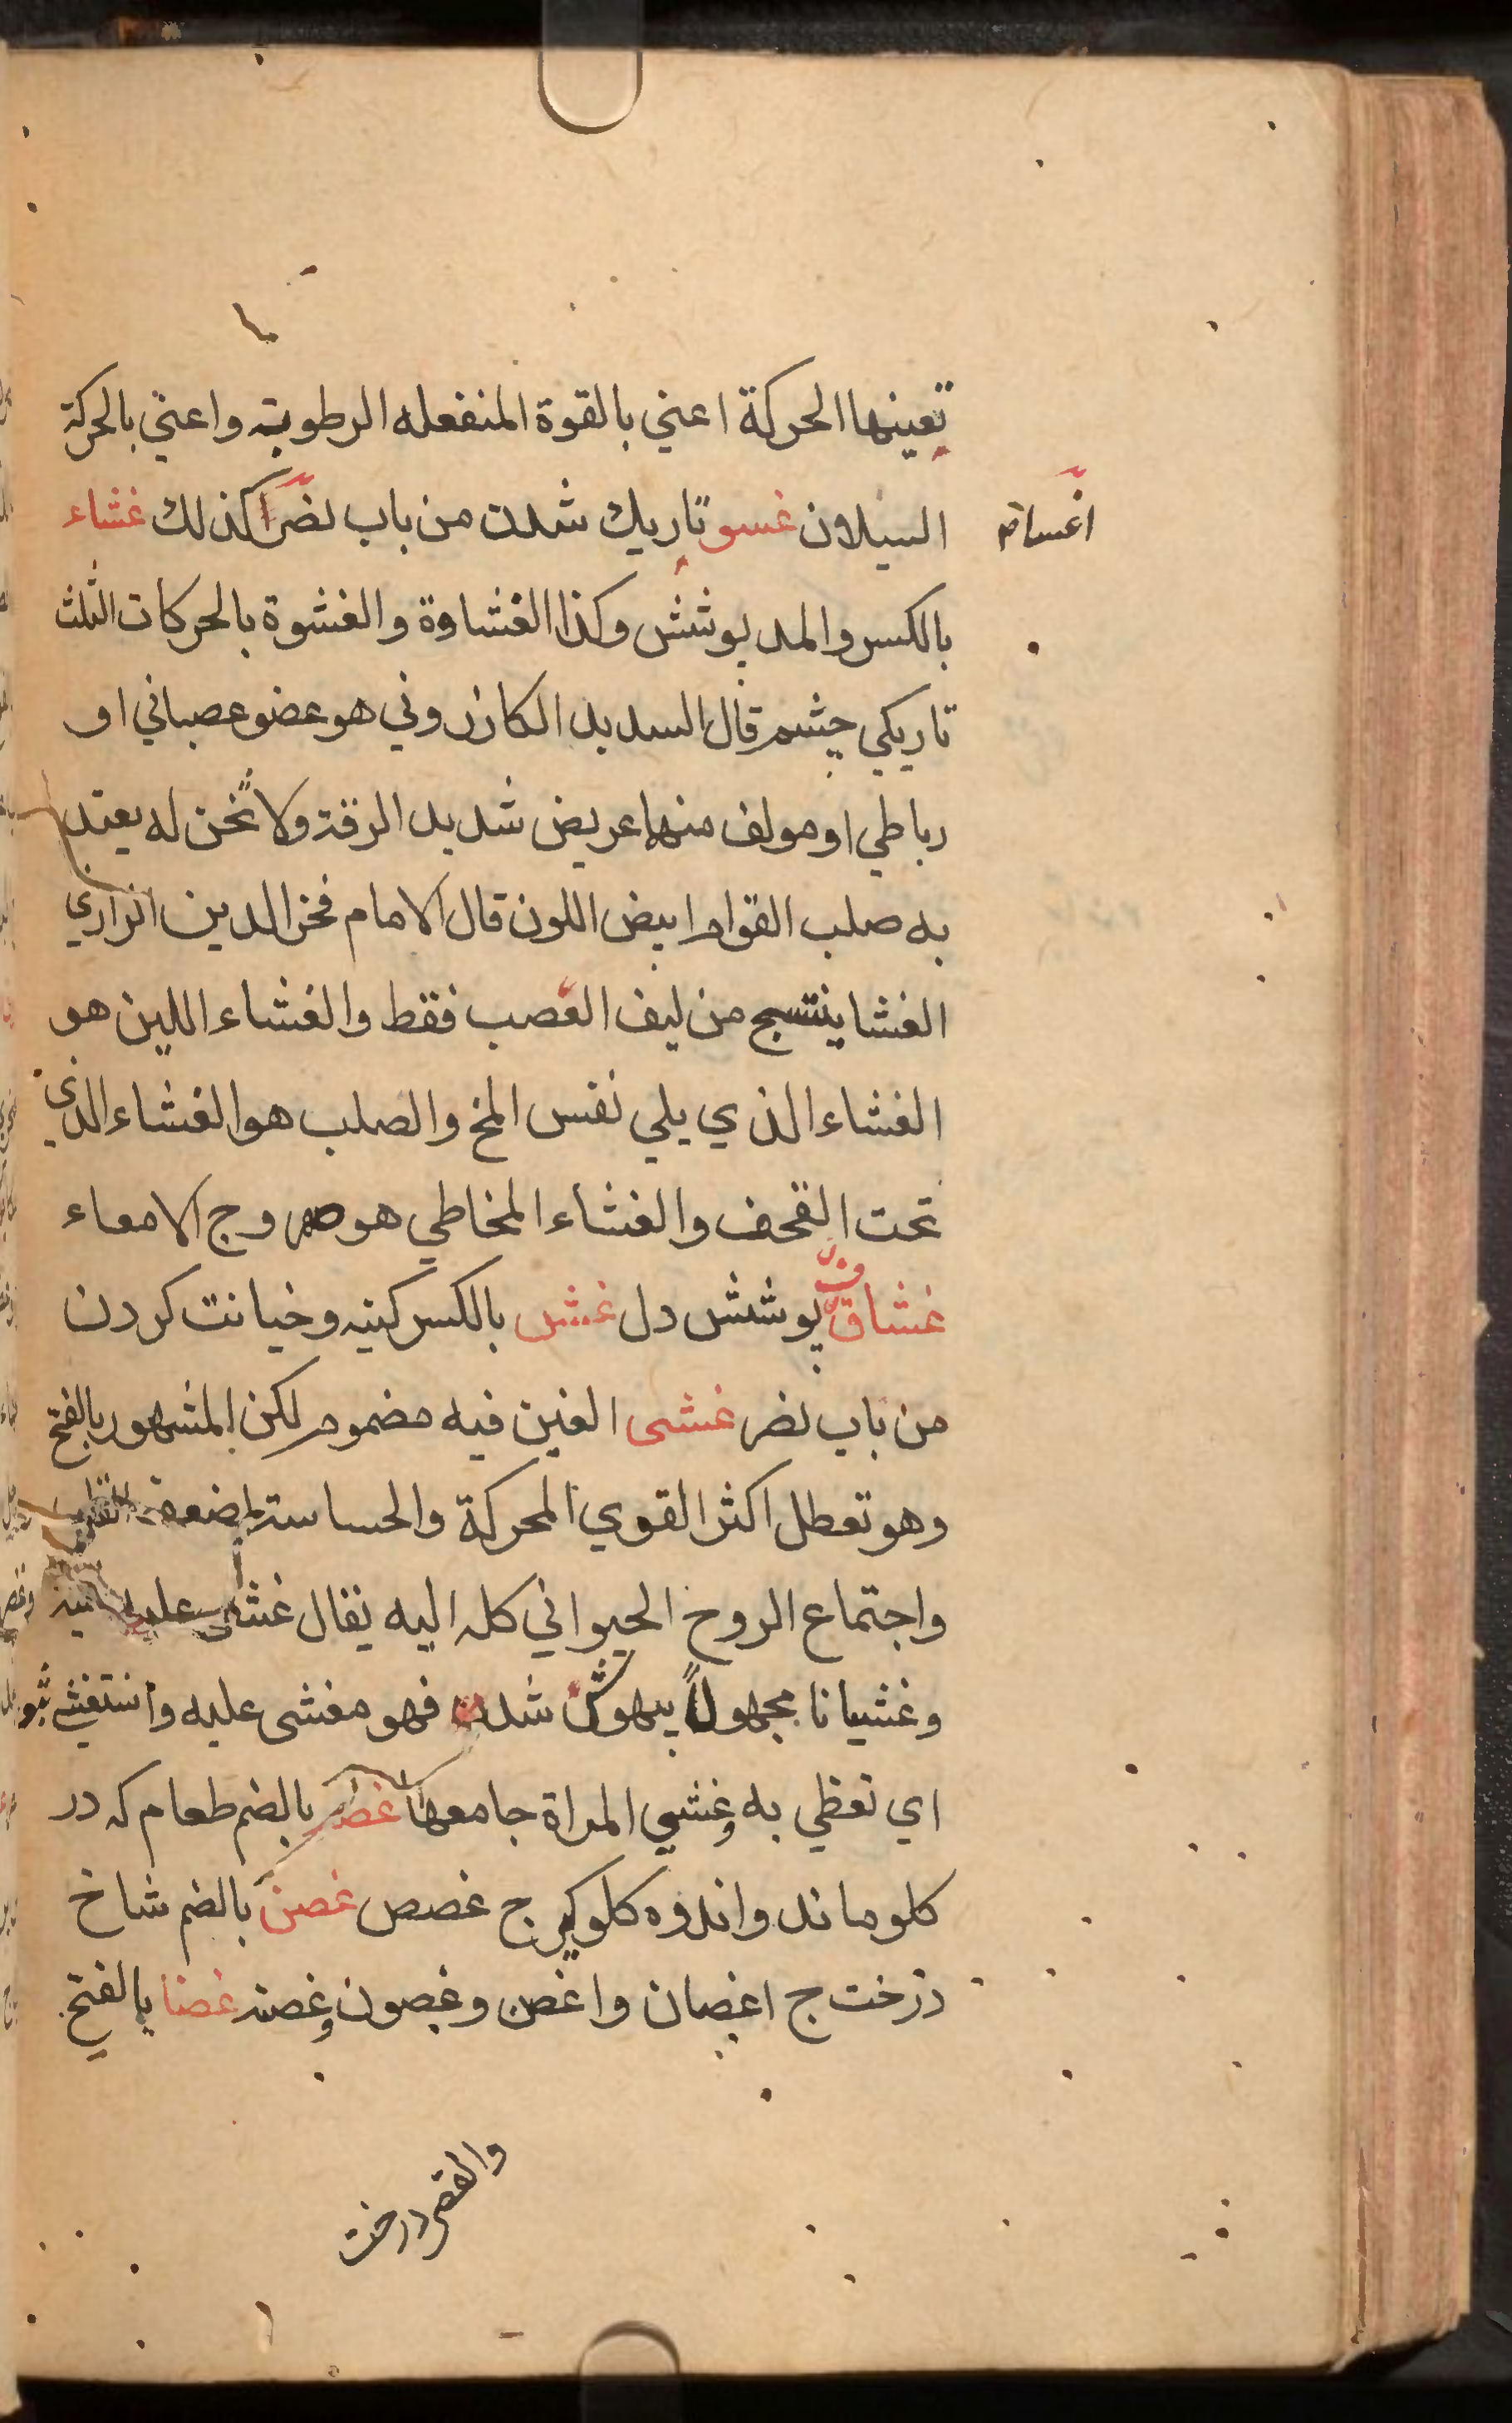 تعينها الحركة اعني بالقوة المنفعله الرطوبة واعني بالحركة
السيلان غسو تاريك شدن من باب نصر كذلك غشاء
اغساء
بالكسر والمد پوشش وكذا الغشاوة والغشوة بالحركات الثلث
تاريكي چشم قال السديد الكازروني هو عضو عصباني او
رباطي او مولف منها عريض شديد الرقة ولا ثخن له يعتد
به صلب القوام ابيض اللون قال الامام فخر الدين الرازي
الغشا ينتسج من ليف العصب فقط والغشاء اللين هو
الغشاء الذي يلي نفس المخ والصلب هو الغشاء الذي
تحت القحف والغشاء المخاطي هو صهروج الامعاء
غشاق پوشش دل غش بالكسر كينه وخيانت كردن
من باب نصر غشى الغين فيه مضموم لكن المشهور بالفتح
وهو تعطل اكثر القوي المحركة والحساسة لضعف القلب
واجتماع الروح الحيواني كله اليه يقال غشى عليه
وغشيانا مجهولاً بيهوش شدن فهو مغشى عليه واستغشي بثوبه
اي تغطي به وغشي المراة جامعها غصه بالضم طعام كه در
كلو ماند واندوه كلوكير ج غصص غصن بالضم شاخ
درخت ج اغصان واغصن وغصون وغصنه غضا بالفتح
والقصر درخت